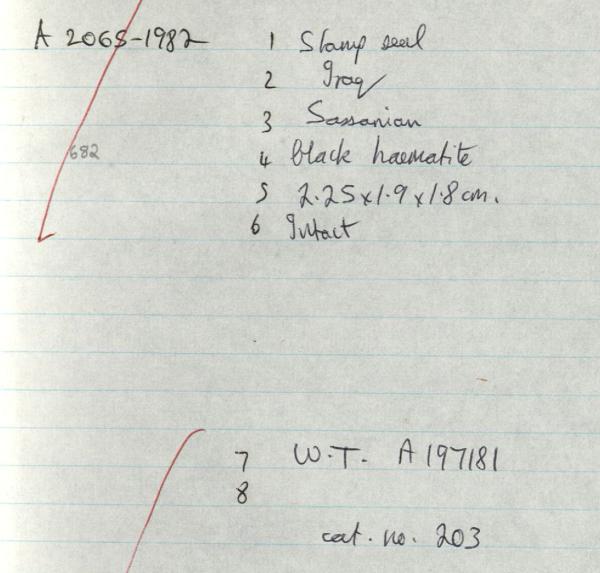 A 2065-1982 1 Stamp seal
2 Iraq
3 Sassanian
682
4 black haematite
5 2.25 x 1.9 x 1.8 cm.
6 Intact
7 W.T. A197181
8
cat. no. 203